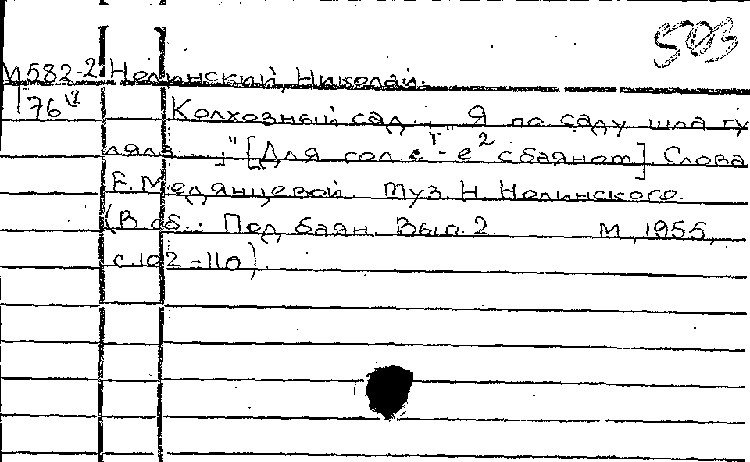 503
М582-2 Нолинский, Николай.
76 VI Колхозный сад. „Я по саду шла гу
ляла ..." [Для гол. c¹-e² с баяном] Слова
Е. Медянцевой. Муз. Н. Нолинского.
(В сб.: Под баян. Вып. 2 М, 1955,
с. 102-110).